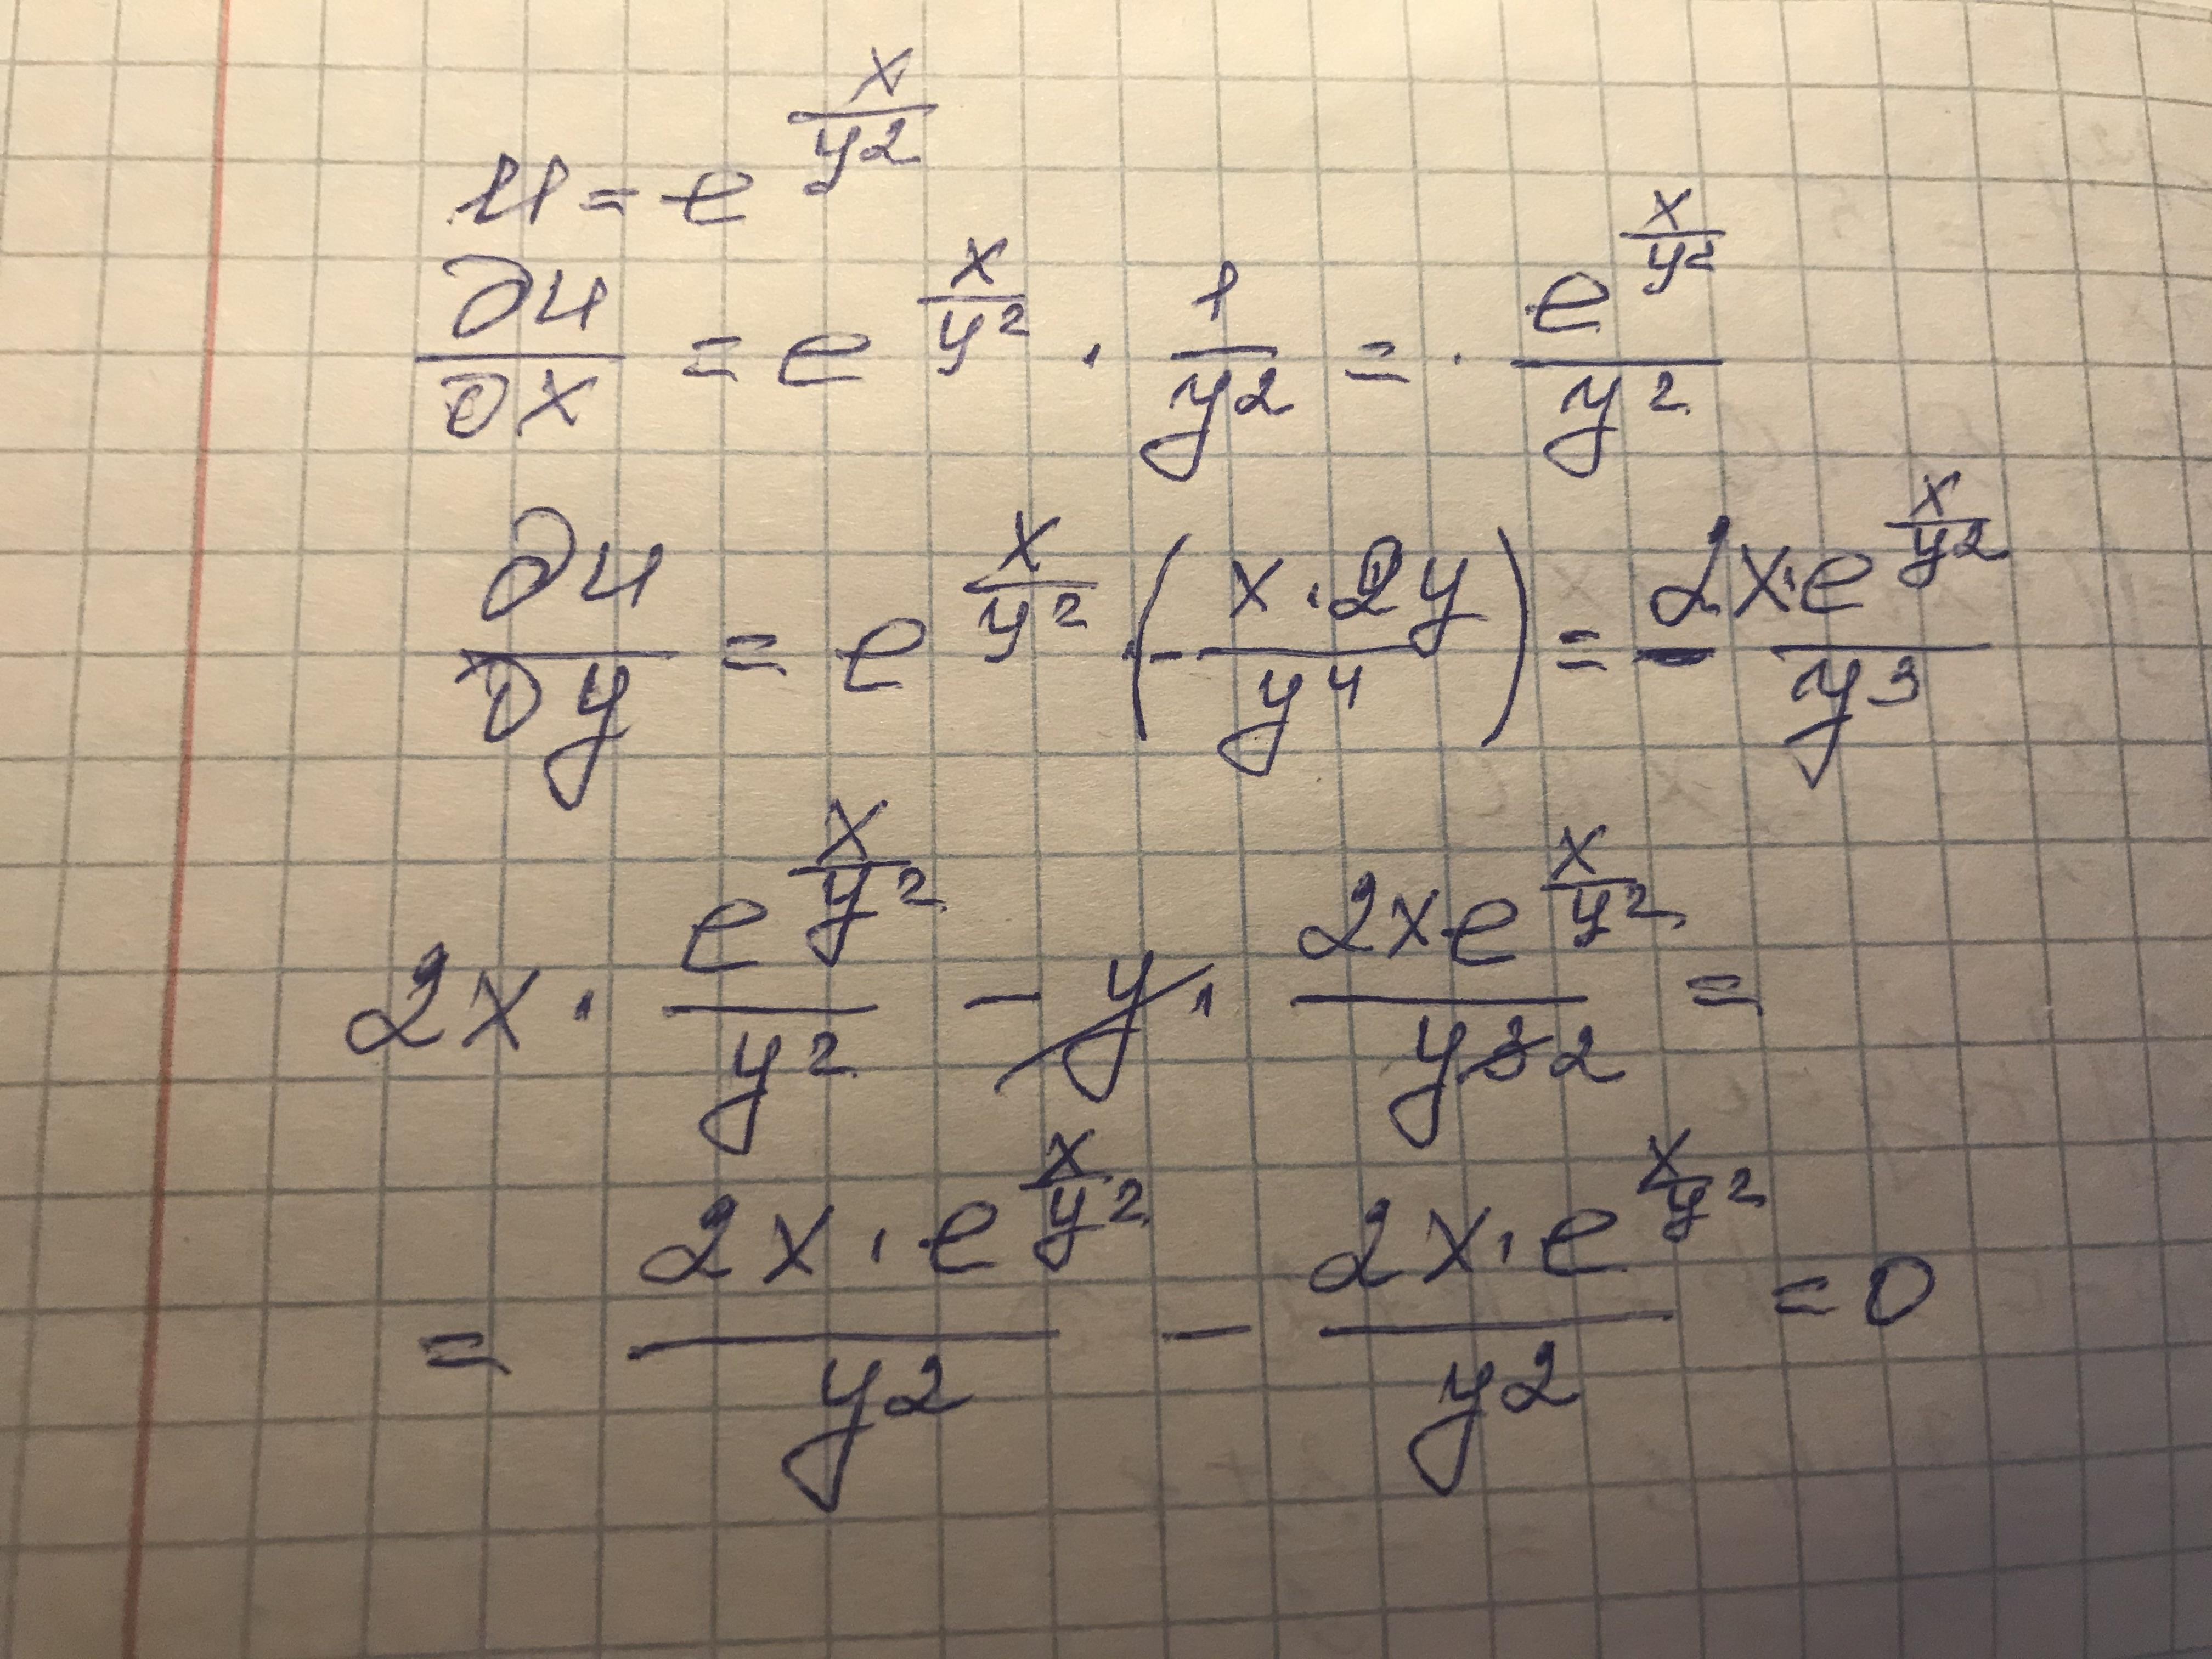 u = e^{x/y^2}
∂u/∂x = e^{x/y^2} · 1/y^2 = · e^{x/y^2}/y^2
∂u/∂y = e^{x/y^2} · (- x·2y/y^4) = - 2x·e^{x/y^2}/y^3
2x · e^{x/y^2}/y^2 - y · 2xe^{x/y^2}/y^{3 2} =
= 2x·e^{x/y^2}/y^2 - 2x·e^{x/y^2}/y^2 = 0